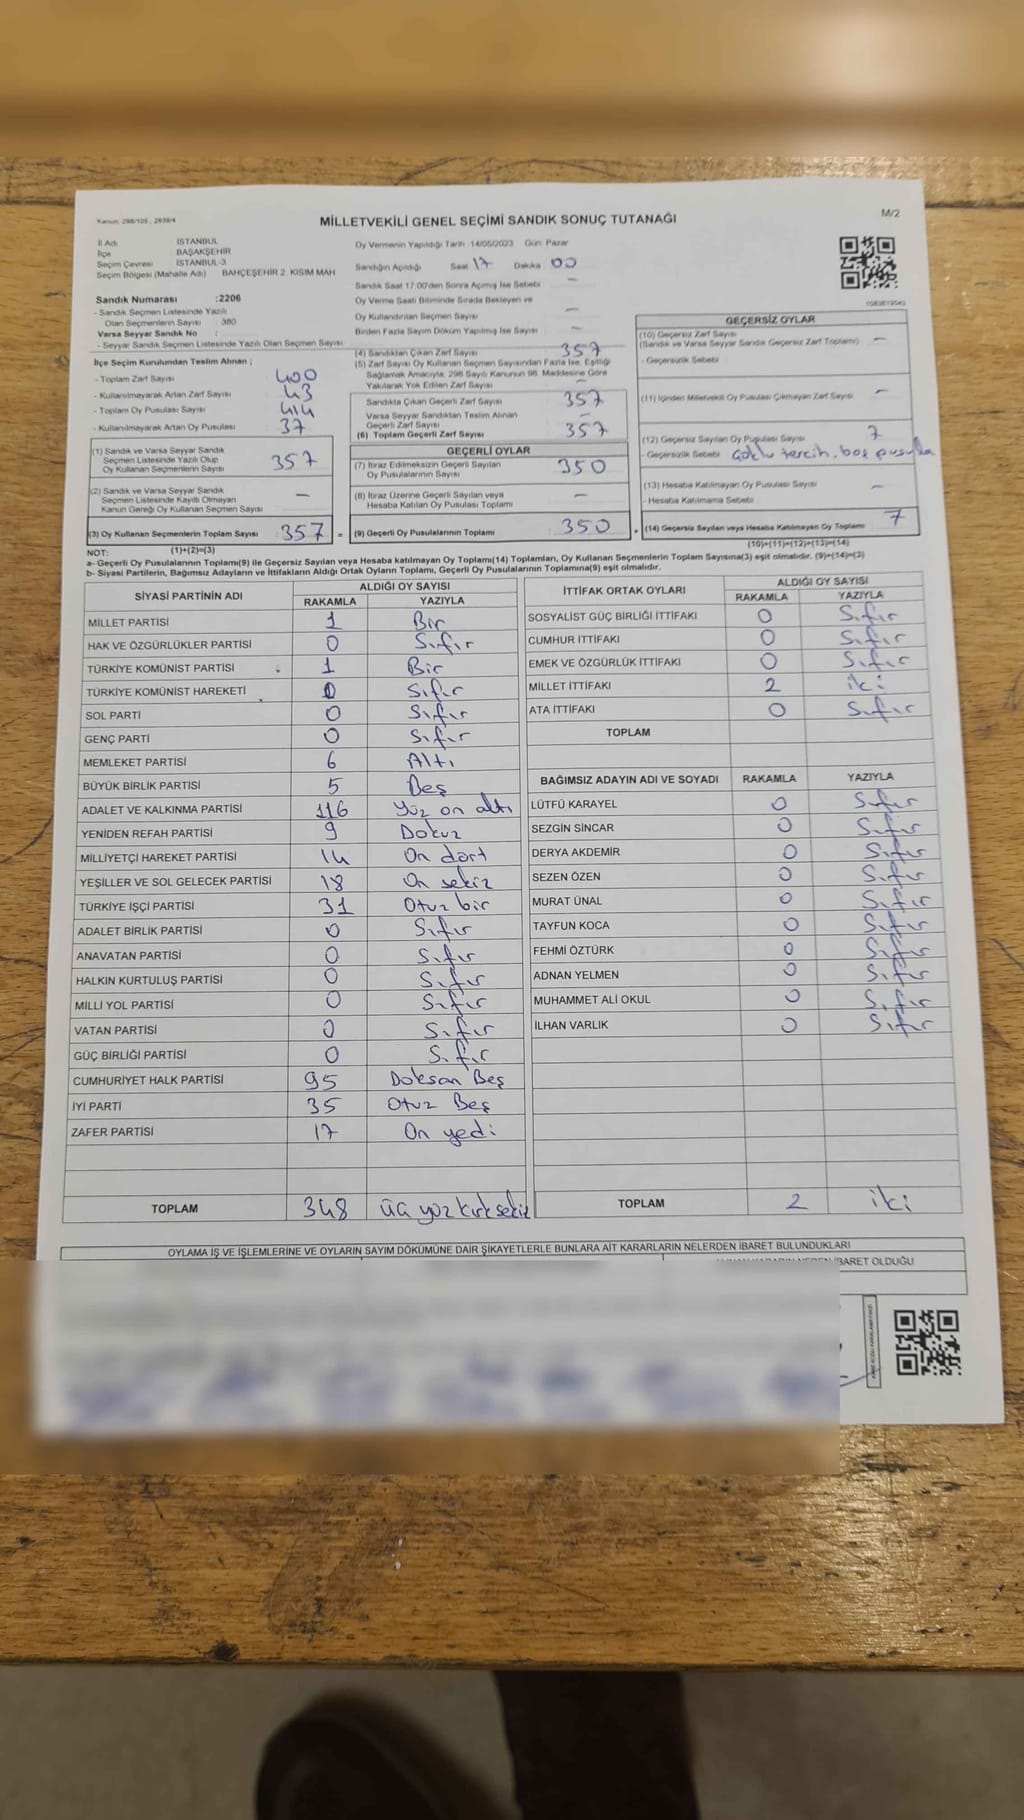 Kanun: 298/105 , 2839/4
M/2
MİLLETVEKİLİ GENEL SEÇİMİ SANDIK SONUÇ TUTANAĞI
İl Adı : İSTANBUL
İlçe : BAŞAKŞEHİR
Seçim Çevresi : İSTANBUL-3
Seçim Bölgesi (Mahalle Adı) BAHÇEŞEHİR 2. KISIM MAH
Sandık Numarası :2206
- Sandık Seçmen Listesinde Yazılı
Olan Seçmenlerin Sayısı 380
Varsa Seyyar Sandık No :
- Seyyar Sandık Seçmen Listesinde Yazılı Olan Seçmen Sayısı
İlçe Seçim Kurulundan Teslim Alınan ;
- Toplam Zarf Sayısı 400
- Kullanılmayarak Artan Zarf Sayısı 43
- Toplam Oy Pusulası Sayısı 414
- Kullanılmayarak Artan Oy Pusulası 37
(1) Sandık ve Varsa Seyyar Sandık
Seçmen Listesinde Yazılı Olup
Oy Kullanan Seçmenlerin Sayısı 357
(2) Sandık ve Varsa Seyyar Sandık
Seçmen Listesinde Kayıtlı Olmayan
Kanun Gereği Oy Kullanan Seçmen Sayısı –
(3) Oy Kullanan Seçmenlerin Toplam Sayısı 357 =
Oy Vermenin Yapıldığı Tarih: 14/05/2023 Gün: Pazar
Sandığın Açıldığı Saat 17 Dakika 00
Sandık Saat 17:00'den Sonra Açılmış İse Sebebi –
Oy Verme Saati Bitiminde Sırada Bekleyen ve
Oy Kullandırılan Seçmen Sayısı –
Birden Fazla Sayım Döküm Yapılmış İse Sayısı –
(4) Sandıktan Çıkan Zarf Sayısı 357
(5) Zarf Sayısı Oy Kullanan Seçmen Sayısından Fazla İse, Eşitliği
Sağlamak Amacıyla, 298 Sayılı Kanunun 98. Maddesine Göre
Yakılarak Yok Edilen Zarf Sayısı –
Sandıkta Çıkan Geçerli Zarf Sayısı 357
Varsa Seyyar Sandıktan Teslim Alınan
Geçerli Zarf Sayısı –
(6) Toplam Geçerli Zarf Sayısı 357
GEÇERLİ OYLAR
(7) İtiraz Edilmeksizin Geçerli Sayılan
Oy Pusulalarının Sayısı 350
(8) İtiraz Üzerine Geçerli Sayılan veya
Hesaba Katılan Oy Pusulası Toplamı –
(9) Geçerli Oy Pusulalarının Toplamı 350 +
GEÇERSİZ OYLAR
(10) Geçersiz Zarf Sayısı
(Sandık ve Varsa Seyyar Sandık Geçersiz Zarf Toplamı) –
- Geçersizlik Sebebi
(11) İçinden Milletvekili Oy Pusulası Çıkmayan Zarf Sayısı –
(12) Geçersiz Sayılan Oy Pusulası Sayısı 7
- Geçersizlik Sebebi Çoklu tercih, boş pusula
(13) Hesaba Katılmayan Oy Pusulası Sayısı –
- Hesaba Katılmama Sebebi
(14) Geçersiz Sayılan veya Hesaba Katılmayan Oy Toplamı 7
NOT: (1)+(2)=(3)
(10)+(11)+(12)+(13)=(14)
a- Geçerli Oy Pusulasının Toplamı(9) ile Geçersiz Sayılan veya Hesaba katılmayan Oy Toplamı(14) Toplamları, Oy Kullanan Seçmenlerin Toplam Sayısına(3) eşit olmalıdır. (9)+(14)=(3)
b- Siyasi Partilerin, Bağımsız Adayların ve İttifakların Aldığı Ortak Oyların Toplamı, Geçerli Oy Pusulalarının Toplamına(9) eşit olmalıdır.
SİYASİ PARTİNİN ADI ALDIĞI OY SAYISI
RAKAMLA YAZIYLA
MİLLET PARTİSİ 1 Bir
HAK VE ÖZGÜRLÜKLER PARTİSİ 0 Sıfır
TÜRKİYE KOMÜNİST PARTİSİ 1 Bir
TÜRKİYE KOMÜNİST HAREKETİ 0 Sıfır
SOL PARTİ 0 Sıfır
GENÇ PARTİ 0 Sıfır
MEMLEKET PARTİSİ 6 Altı
BÜYÜK BİRLİK PARTİSİ 5 Beş
ADALET VE KALKINMA PARTİSİ 116 Yüz on altı
YENİDEN REFAH PARTİSİ 9 Dokuz
MİLLİYETÇİ HAREKET PARTİSİ 14 On dört
YEŞİLLER VE SOL GELECEK PARTİSİ 18 On sekiz
TÜRKİYE İŞÇİ PARTİSİ 31 Otuz bir
ADALET BİRLİK PARTİSİ 0 Sıfır
ANAVATAN PARTİSİ 0 Sıfır
HALKIN KURTULUŞ PARTİSİ 0 Sıfır
MİLLİ YOL PARTİSİ 0 Sıfır
VATAN PARTİSİ 0 Sıfır
GÜÇ BİRLİĞİ PARTİSİ 0 Sıfır
CUMHURİYET HALK PARTİSİ 95 Doksan Beş
İYİ PARTİ 35 Otuz Beş
ZAFER PARTİSİ 17 On yedi
TOPLAM 348 üç yüz kırk sekiz
İTTİFAK ORTAK OYLARI ALDIĞI OY SAYISI
RAKAMLA YAZIYLA
SOSYALİST GÜÇ BİRLİĞİ İTTİFAKI 0 Sıfır
CUMHUR İTTİFAKI 0 Sıfır
EMEK VE ÖZGÜRLÜK İTTİFAKI 0 Sıfır
MİLLET İTTİFAKI 2 iki
ATA İTTİFAKI 0 Sıfır
TOPLAM
BAĞIMSIZ ADAYIN ADI VE SOYADI RAKAMLA YAZIYLA
LÜTFÜ KARAYEL 0 Sıfır
SEZGİN SİNCAR 0 Sıfır
DERYA AKDEMİR 0 Sıfır
SEZEN ÖZEN 0 Sıfır
MURAT ÜNAL 0 Sıfır
TAYFUN KOCA 0 Sıfır
FEHMİ ÖZTÜRK 0 Sıfır
ADNAN YELMEN 0 Sıfır
MUHAMMET ALİ OKUL 0 Sıfır
İLHAN VARLIK 0 Sıfır
TOPLAM 2 iki
OYLAMA İŞ VE İŞLEMLERİNE VE OYLARIN SAYIM DÖKÜMÜNE DAİR ŞİKAYETLERLE BUNLARA AİT KARARLARIN NELERDEN İBARET BULUNDUKLARI
İBARET OLDUĞU